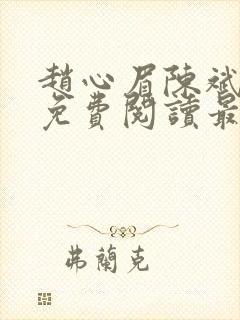 趙心眉陳斌
免費閱讀最
弗蘭克